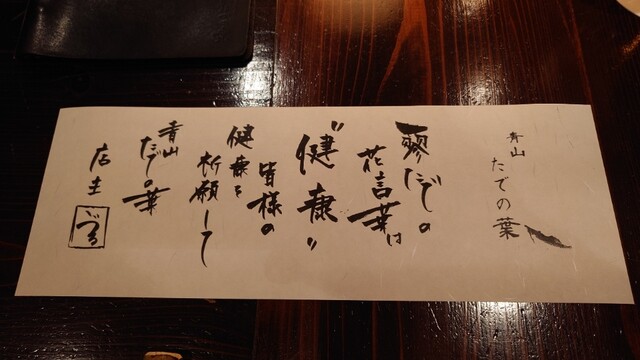 青山
たでの葉
蓼たでの
花言葉は
"健康"
皆様の
健康を
祈願して
青山
たでの葉
店主
づる